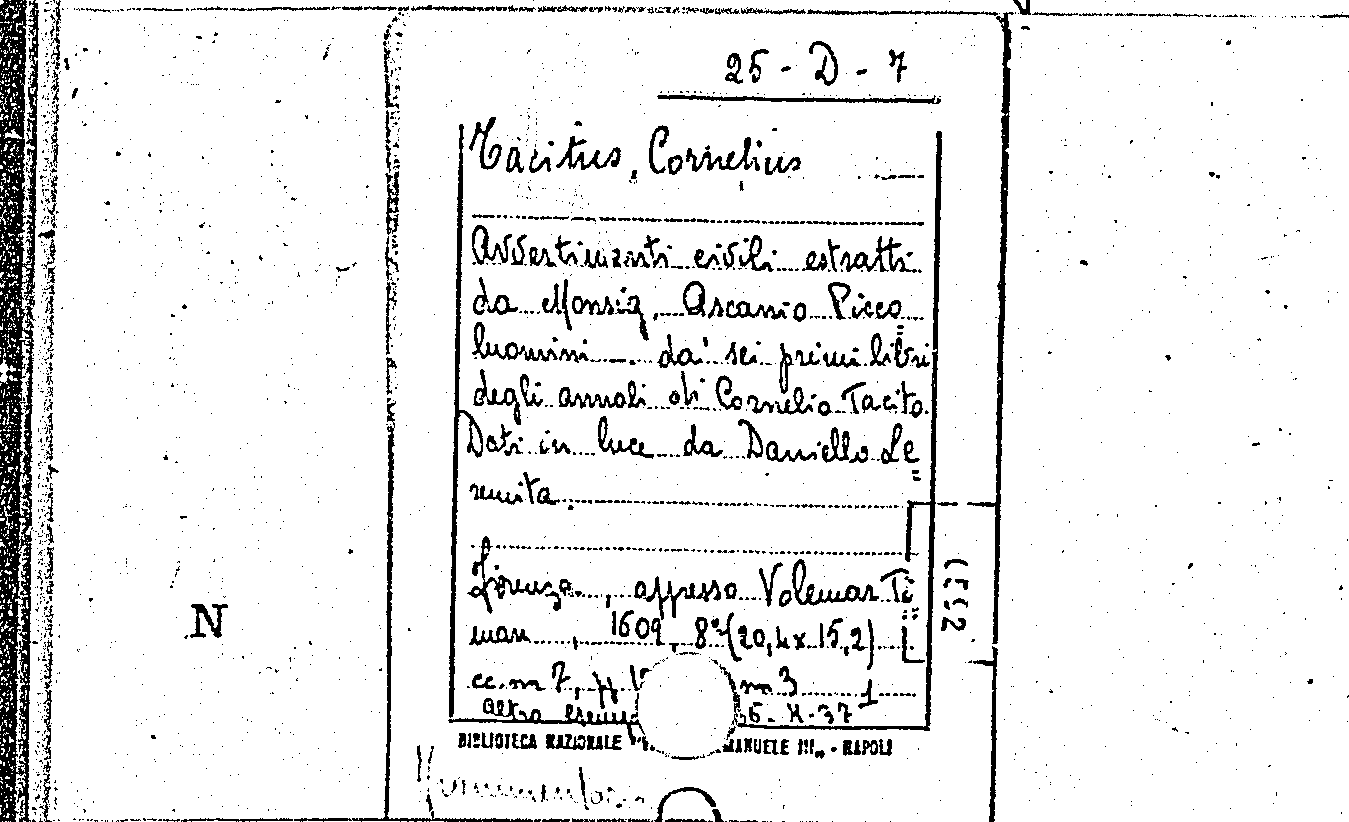 25 - D - 7
Tacitus, Cornelius
Avvertimenti civili estratti
da Monsig. Ascanio Picco
luomini dai sei primi libri
degli annali di Cornelio Tacito.
Dati in luce da Daniello Le
remita.
Fiorenza, appresso Volcmar Ti
man, 1609, 8° (20,4x15,2)
cc. nn 7, pp nn 3 1
altro 37
BIBLIOTECA NAZIONALE MANUELE III„ - NAPOLI
N